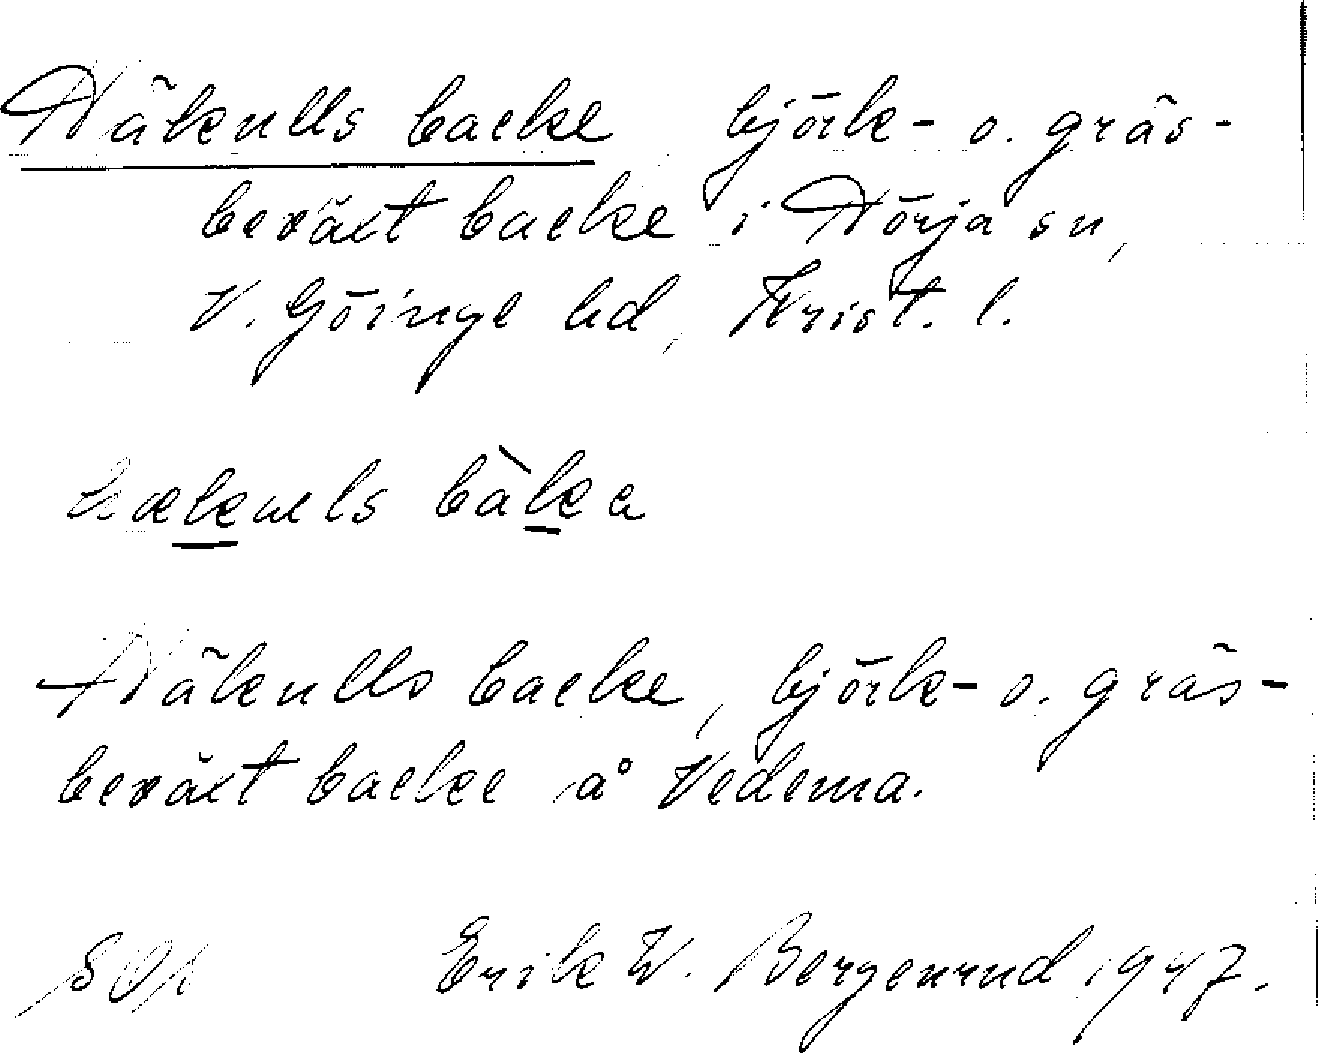 Häkulls backe björk- o. gräs-
beväxt backe i Hörja sn,
V. Göinge hd, Krist. l.
hækuls bàka
Häkulls backe, björk- o. gräs-
beväxt backe å Vedema.
Erik W. Bergenrud 1947.